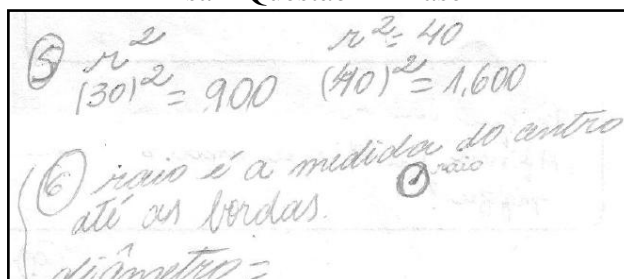 ⑤ r² r² = 40
(30)² = 900 (40)² = 1.600
⑥ raio é a medida do centro
até as bordas. raio
diâmetro =